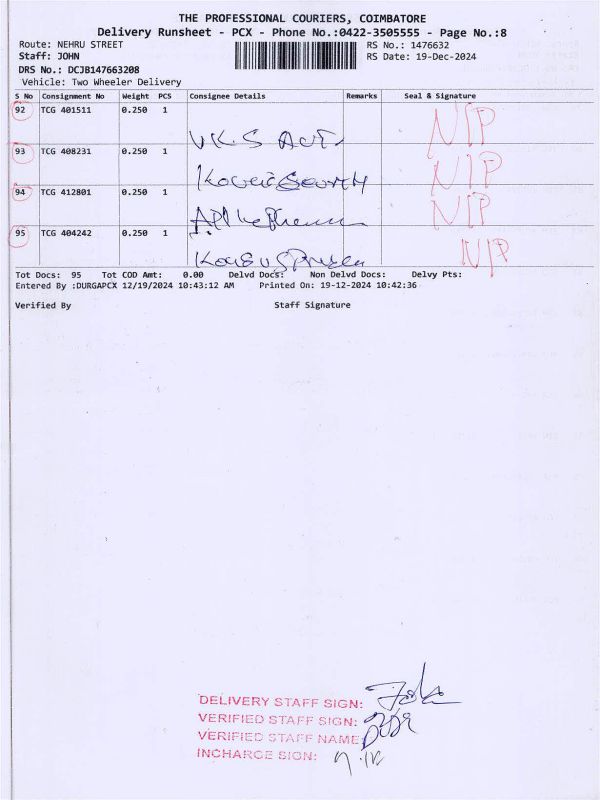 THE PROFESSIONAL COURIERS, COIMBATORE
Delivery Runsheet - PCX - Phone No.:0422-3505555 - Page No.:8
Route: NEHRU STREET RS No.: 1476632
Staff: JOHN RS Date: 19-Dec-2024
DRS No.: DCJB147663208
Vehicle: Two Wheeler Delivery
S No Consignment No Weight PCS Consignee Details Remarks Seal & Signature
92 TCG 401511 0.250 1 N/P
V.K.S
93 TCG 408231 0.250 1 N/P
94 TCG 412801 0.250 1 N/P
95 TCG 404242 0.250 1 N/P
Tot Docs: 95 Tot COD Amt: 0.00 Delvd Docs: Non Delvd Docs: Delvy Pts:
Entered By :DURGAPCX 12/19/2024 10:43:12 AM Printed On: 19-12-2024 10:42:36
Verified By Staff Signature
DELIVERY STAFF SIGN:
VERIFIED STAFF SIGN:
VERIFIED STAFF NAME:
INCHARGE SIGN: